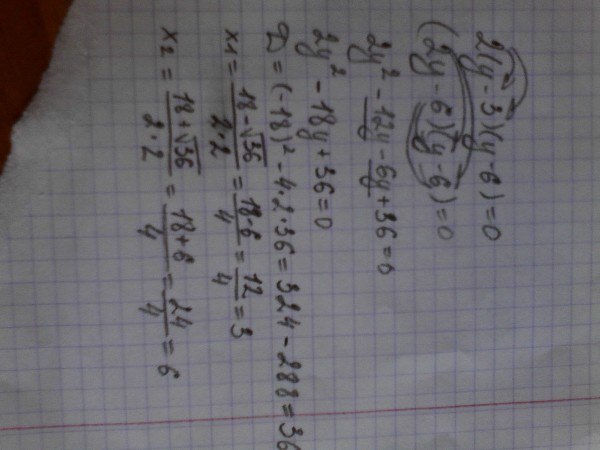 2(y-3)(y-6)=0
(2y-6)(y-6)=0
2y²-12y-6y+36=0
2y²-18y+36=0
D=(-18)²-4·2·36=324-288=36
x1=18-√36/2·2=18-6/4=12/4=3
x2=18+√36/2·2=18+6/4=24/4=6